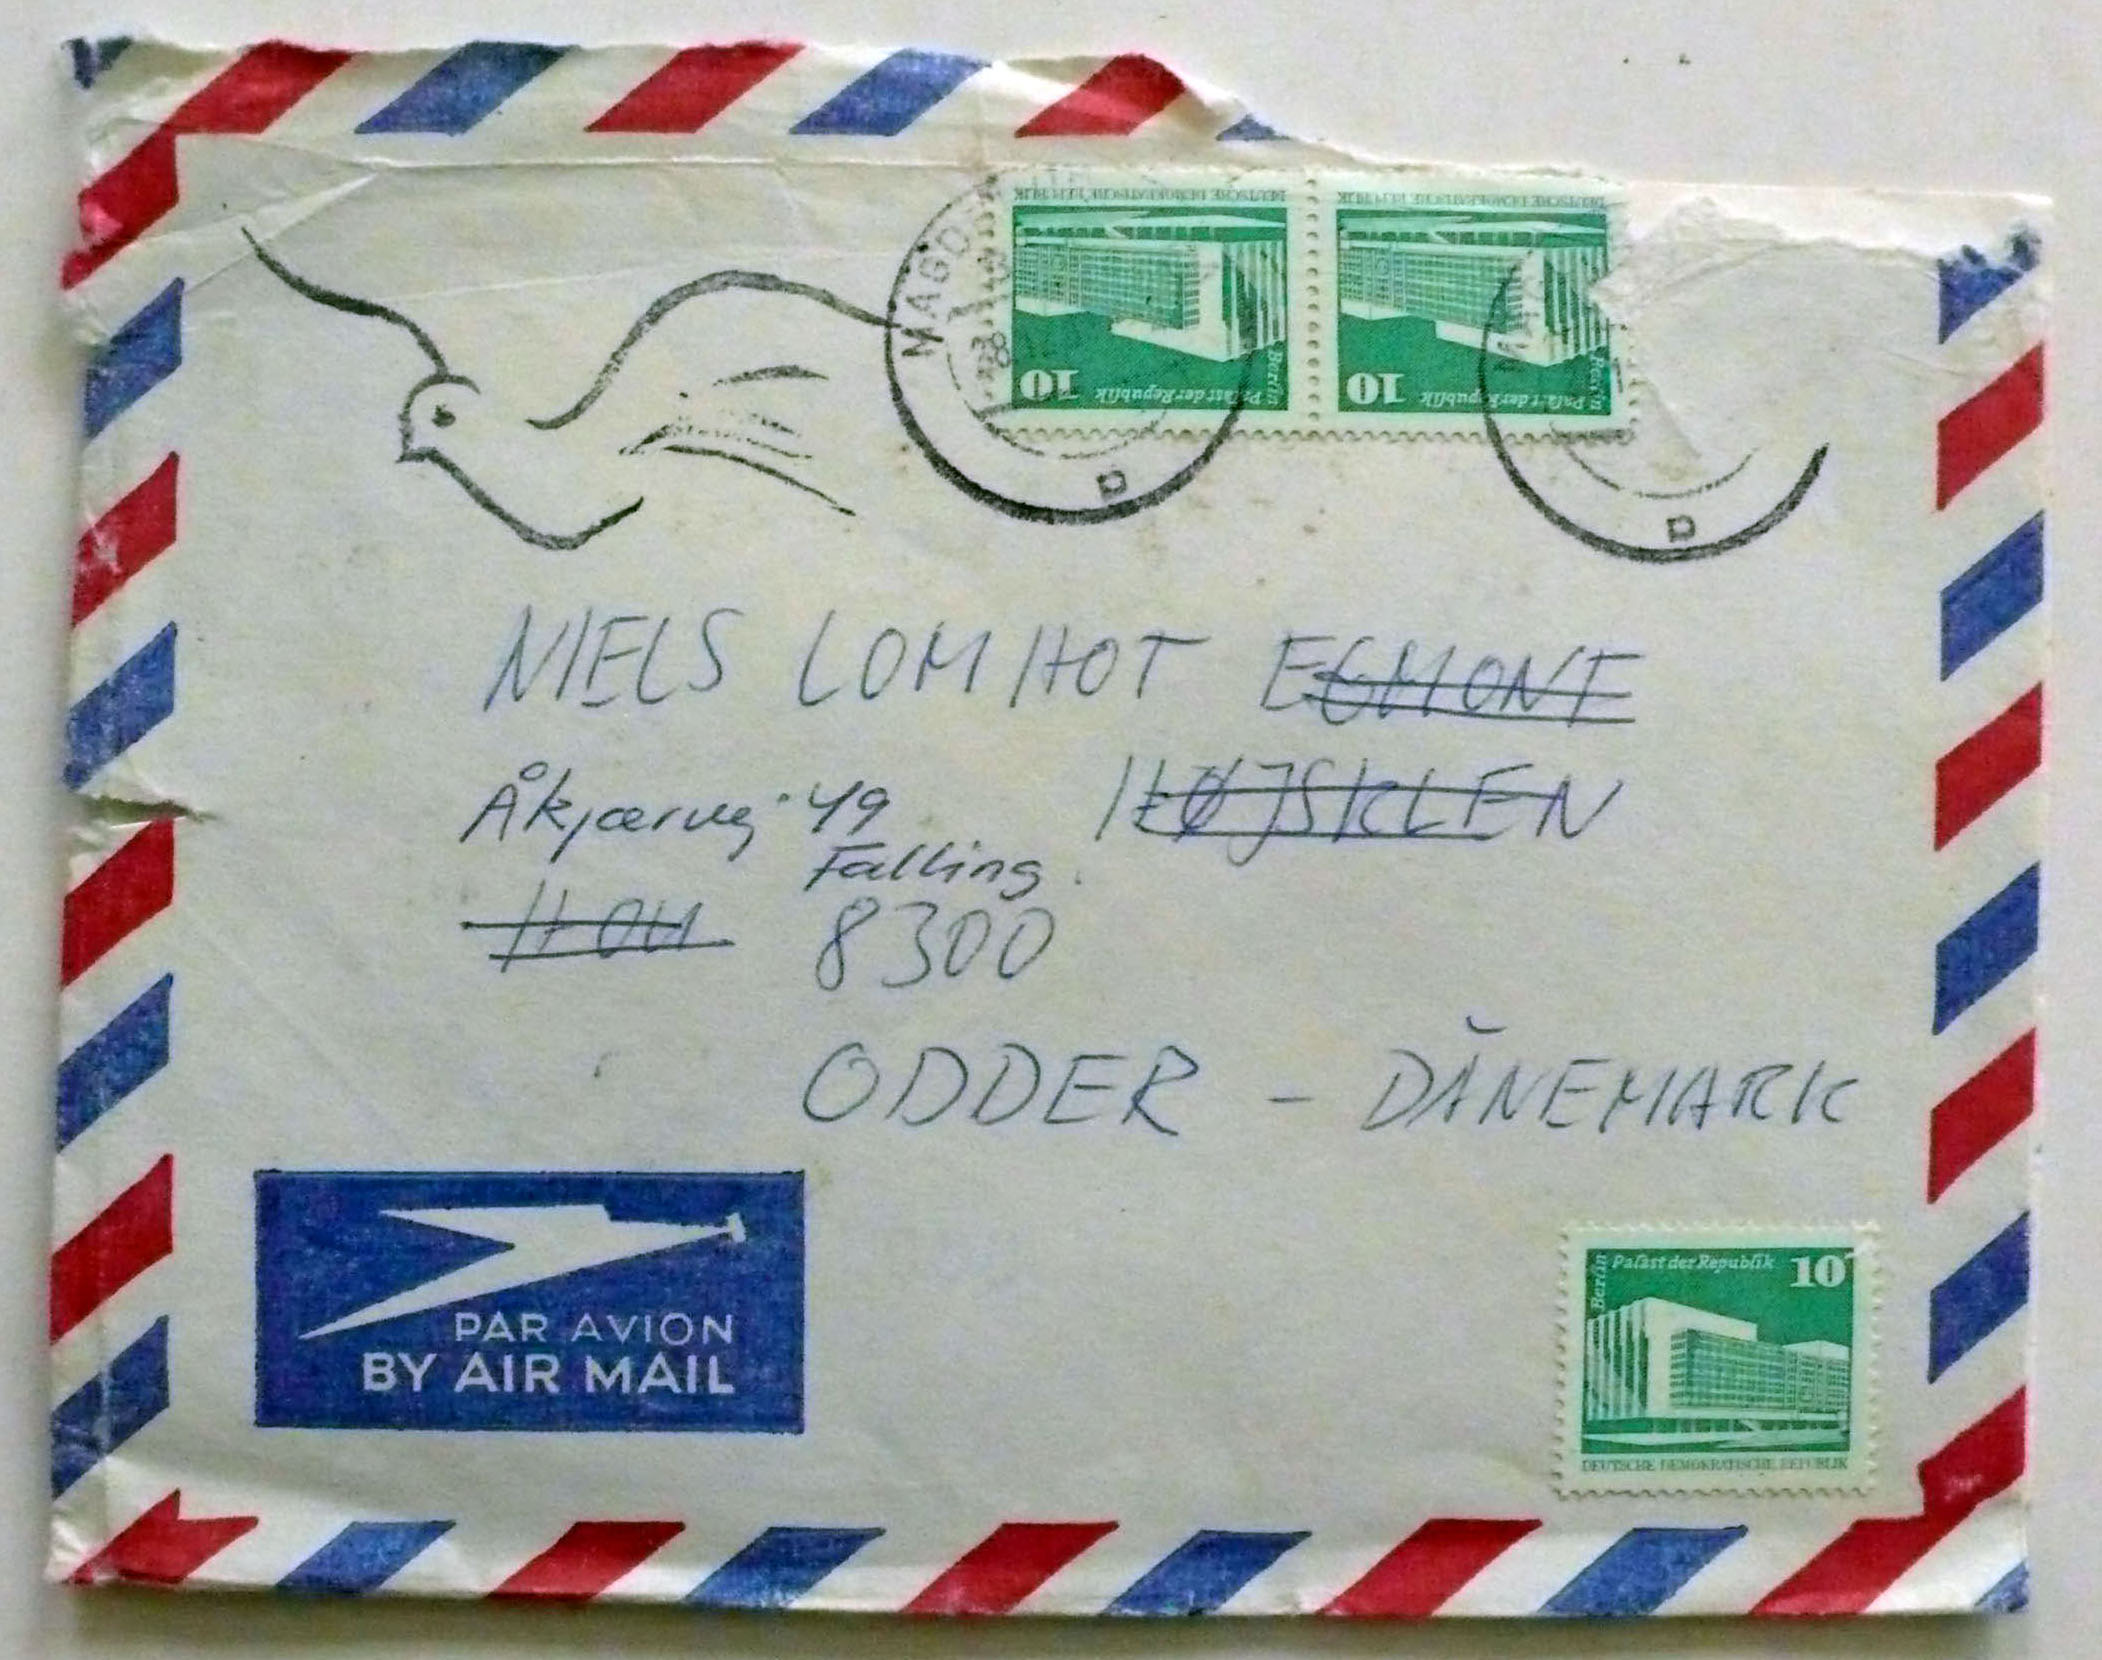 DEUTSCHE DEMOKRATISCHE REPUBLIK
DEUTSCHE DEMOKRATISCHE REPUBLIK
Berlin
Berlin
10 Palast der Republik
10 Palast der Republik
p
p
NIELS LOMHOT EGMONT
HØJSKLEN
Åkjærvej 49
Falling
Hou 8300
ODDER - DÄNEMARK
PAR AVION
BY AIR MAIL
Berlin
Palast der Republik 10
DEUTSCHE DEMOKRATISCHE REPUBLIK